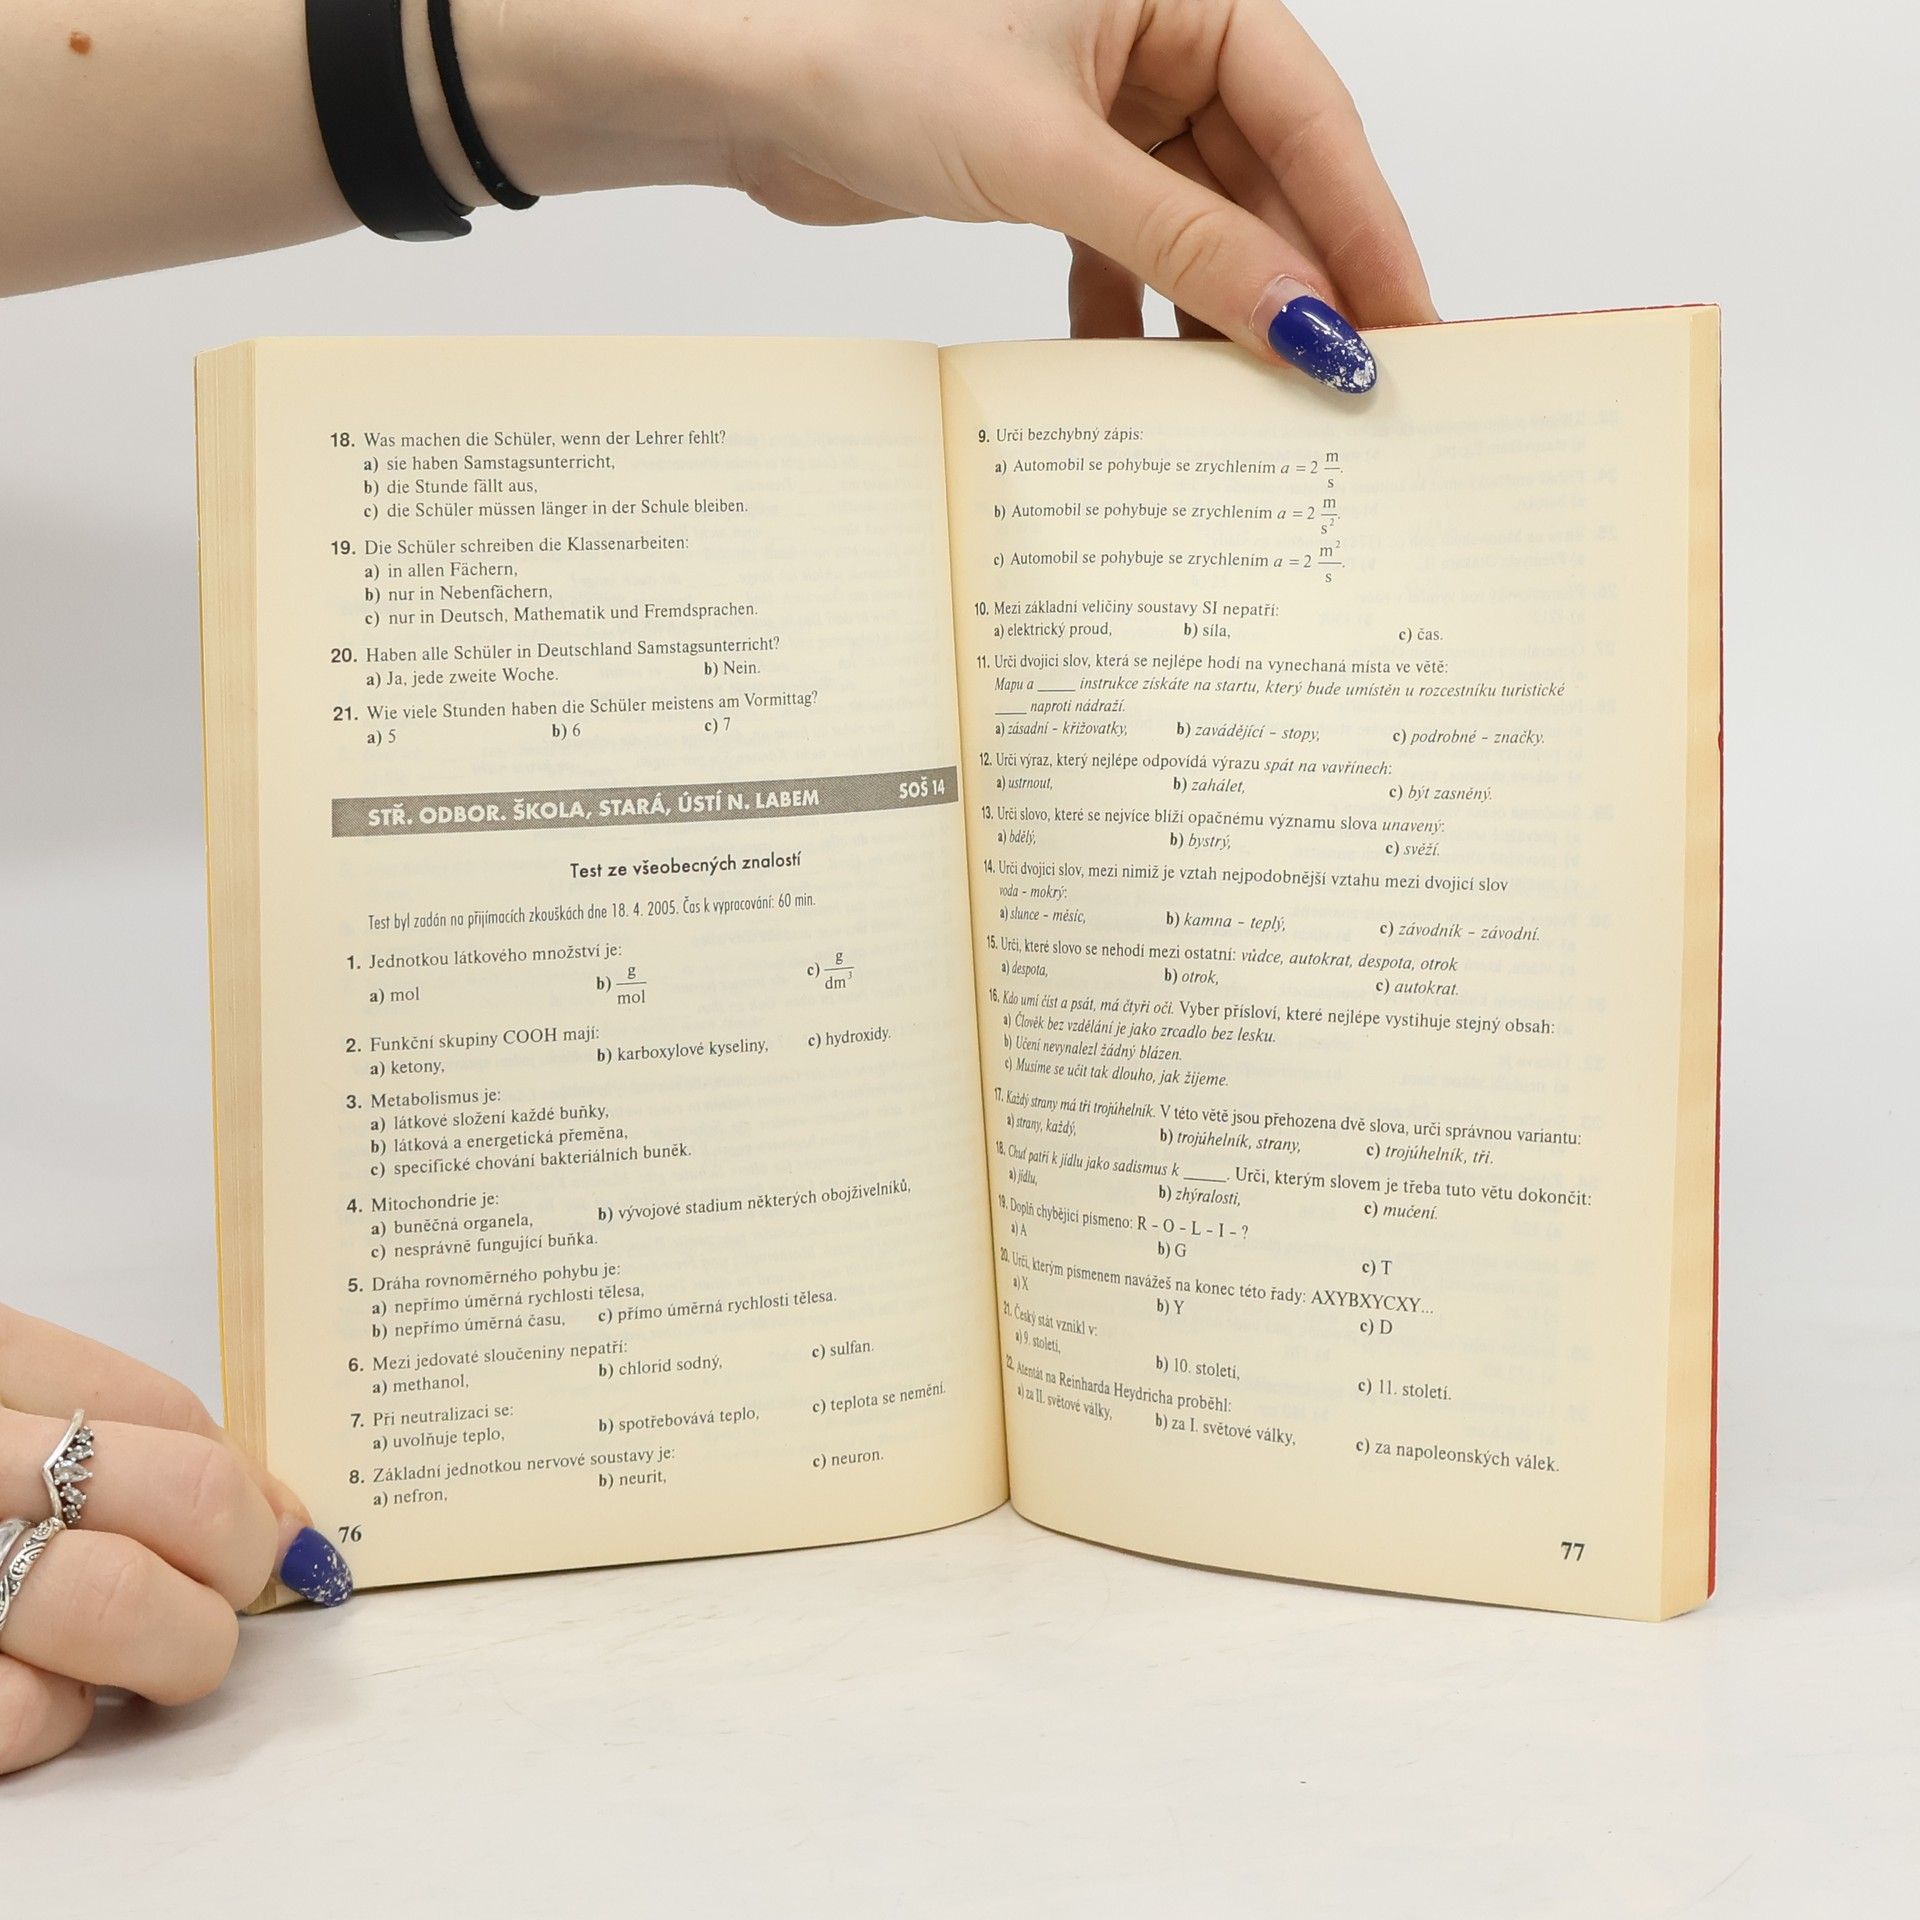 18. Was machen die Schüler, wenn der Lehrer fehlt?
a) sie haben Samstagsunterricht,
b) die Stunde fällt aus,
c) die Schüler müssen länger in der Schule bleiben.
19. Die Schüler schreiben die Klassenarbeiten:
a) in allen Fächern,
b) nur in Nebenfächern,
c) nur in Deutsch, Mathematik und Fremdsprachen.
20. Haben alle Schüler in Deutschland Samstagsunterricht?
a) Ja, jede zweite Woche. b) Nein.
21. Wie viele Stunden haben die Schüler meistens am Vormittag?
a) 5 b) 6 c) 7
STŘ. ODBOR. ŠKOLA, STARÁ, ÚSTÍ N. LABEM SOŠ 14
Test ze všeobecných znalostí
Test byl zadán na přijímacích zkouškách dne 18. 4. 2005. Čas k vypracování: 60 min.
1. Jednotkou látkového množství je:
a) mol b) g/mol c) g/dm³
2. Funkční skupiny COOH mají:
a) ketony, b) karboxylové kyseliny, c) hydroxidy.
3. Metabolismus je:
a) látkové složení každé buňky,
b) látková a energetická přeměna,
c) specifické chování bakteriálních buněk.
4. Mitochondrie je:
a) buněčná organela, b) vývojové stadium některých obojživelníků,
c) nesprávně fungující buňka.
5. Dráha rovnoměrného pohybu je:
a) nepřímo úměrná rychlosti tělesa,
b) nepřímo úměrná času, c) přímo úměrná rychlosti tělesa.
6. Mezi jedovaté sloučeniny nepatří:
a) methanol, b) chlorid sodný, c) sulfan.
7. Při neutralizaci se:
a) uvolňuje teplo, b) spotřebovává teplo, c) teplota se nemění.
8. Základní jednotkou nervové soustavy je:
a) nefron, b) neurit, c) neuron.
76
9. Urči bezchybný zápis:
a) Automobil se pohybuje se zrychlením a = 2 m/s.
b) Automobil se pohybuje se zrychlením a = 2 m/s².
c) Automobil se pohybuje se zrychlením a = 2 m²/s.
10. Mezi základní veličiny soustavy SI nepatří:
a) elektrický proud, b) síla, c) čas.
11. Urči dvojici slov, která se nejlépe hodí na vynechaná místa ve větě:
Mapu a _____ instrukce získáte na startu, který bude umístěn u rozcestníku turistické
____ naproti nádraží.
a) zásadní – křižovatky, b) zavádějící – stopy, c) podrobné – značky.
12. Urči výraz, který nejlépe odpovídá výrazu spát na vavřínech:
a) ustrnout, b) zahálet, c) být zasněný.
13. Urči slovo, které se nejvíce blíží opačnému významu slova unavený:
a) bdělý, b) bystrý, c) svěží.
14. Urči dvojici slov, mezi nimiž je vztah nejpodobnější vztahu mezi dvojicí slov
voda – mokrý:
a) slunce – měsíc, b) kamna – teplý, c) závodník – závodní.
15. Urči, které slovo se nehodí mezi ostatní: vůdce, autokrat, despota, otrok
a) despota, b) otrok, c) autokrat.
16. Kdo umí číst a psát, má čtyři oči. Vyber přísloví, které nejlépe vystihuje stejný obsah:
a) Člověk bez vzdělání je jako zrcadlo bez lesku.
b) Učení nevynalezl žádný blázen.
c) Musíme se učit tak dlouho, jak žijeme.
17. Každý strany má tři trojúhelník. V této větě jsou přehozena dvě slova, urči správnou variantu:
a) strany, každý, b) trojúhelník, strany, c) trojúhelník, tři.
18. Chuť patří k jídlu jako sadismus k _____. Urči, kterým slovem je třeba tuto větu dokončit:
a) jídlu, b) zhýralosti, c) mučení.
19. Doplň chybějící písmeno: R – O – L – I – ?
a) A b) G c) T
20. Urči, kterým písmenem navážeš na konec této řady: AXYBXYCXY...
a) X b) Y c) D
21. Český stát vznikl v:
a) 9. století, b) 10. století, c) 11. století.
22. Atentát na Reinharda Heydricha proběhl:
a) za II. světové války, b) za I. světové války, c) za napoleonských válek.
77